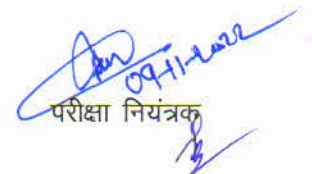 09-11-2022
परीक्षा नियंत्रक